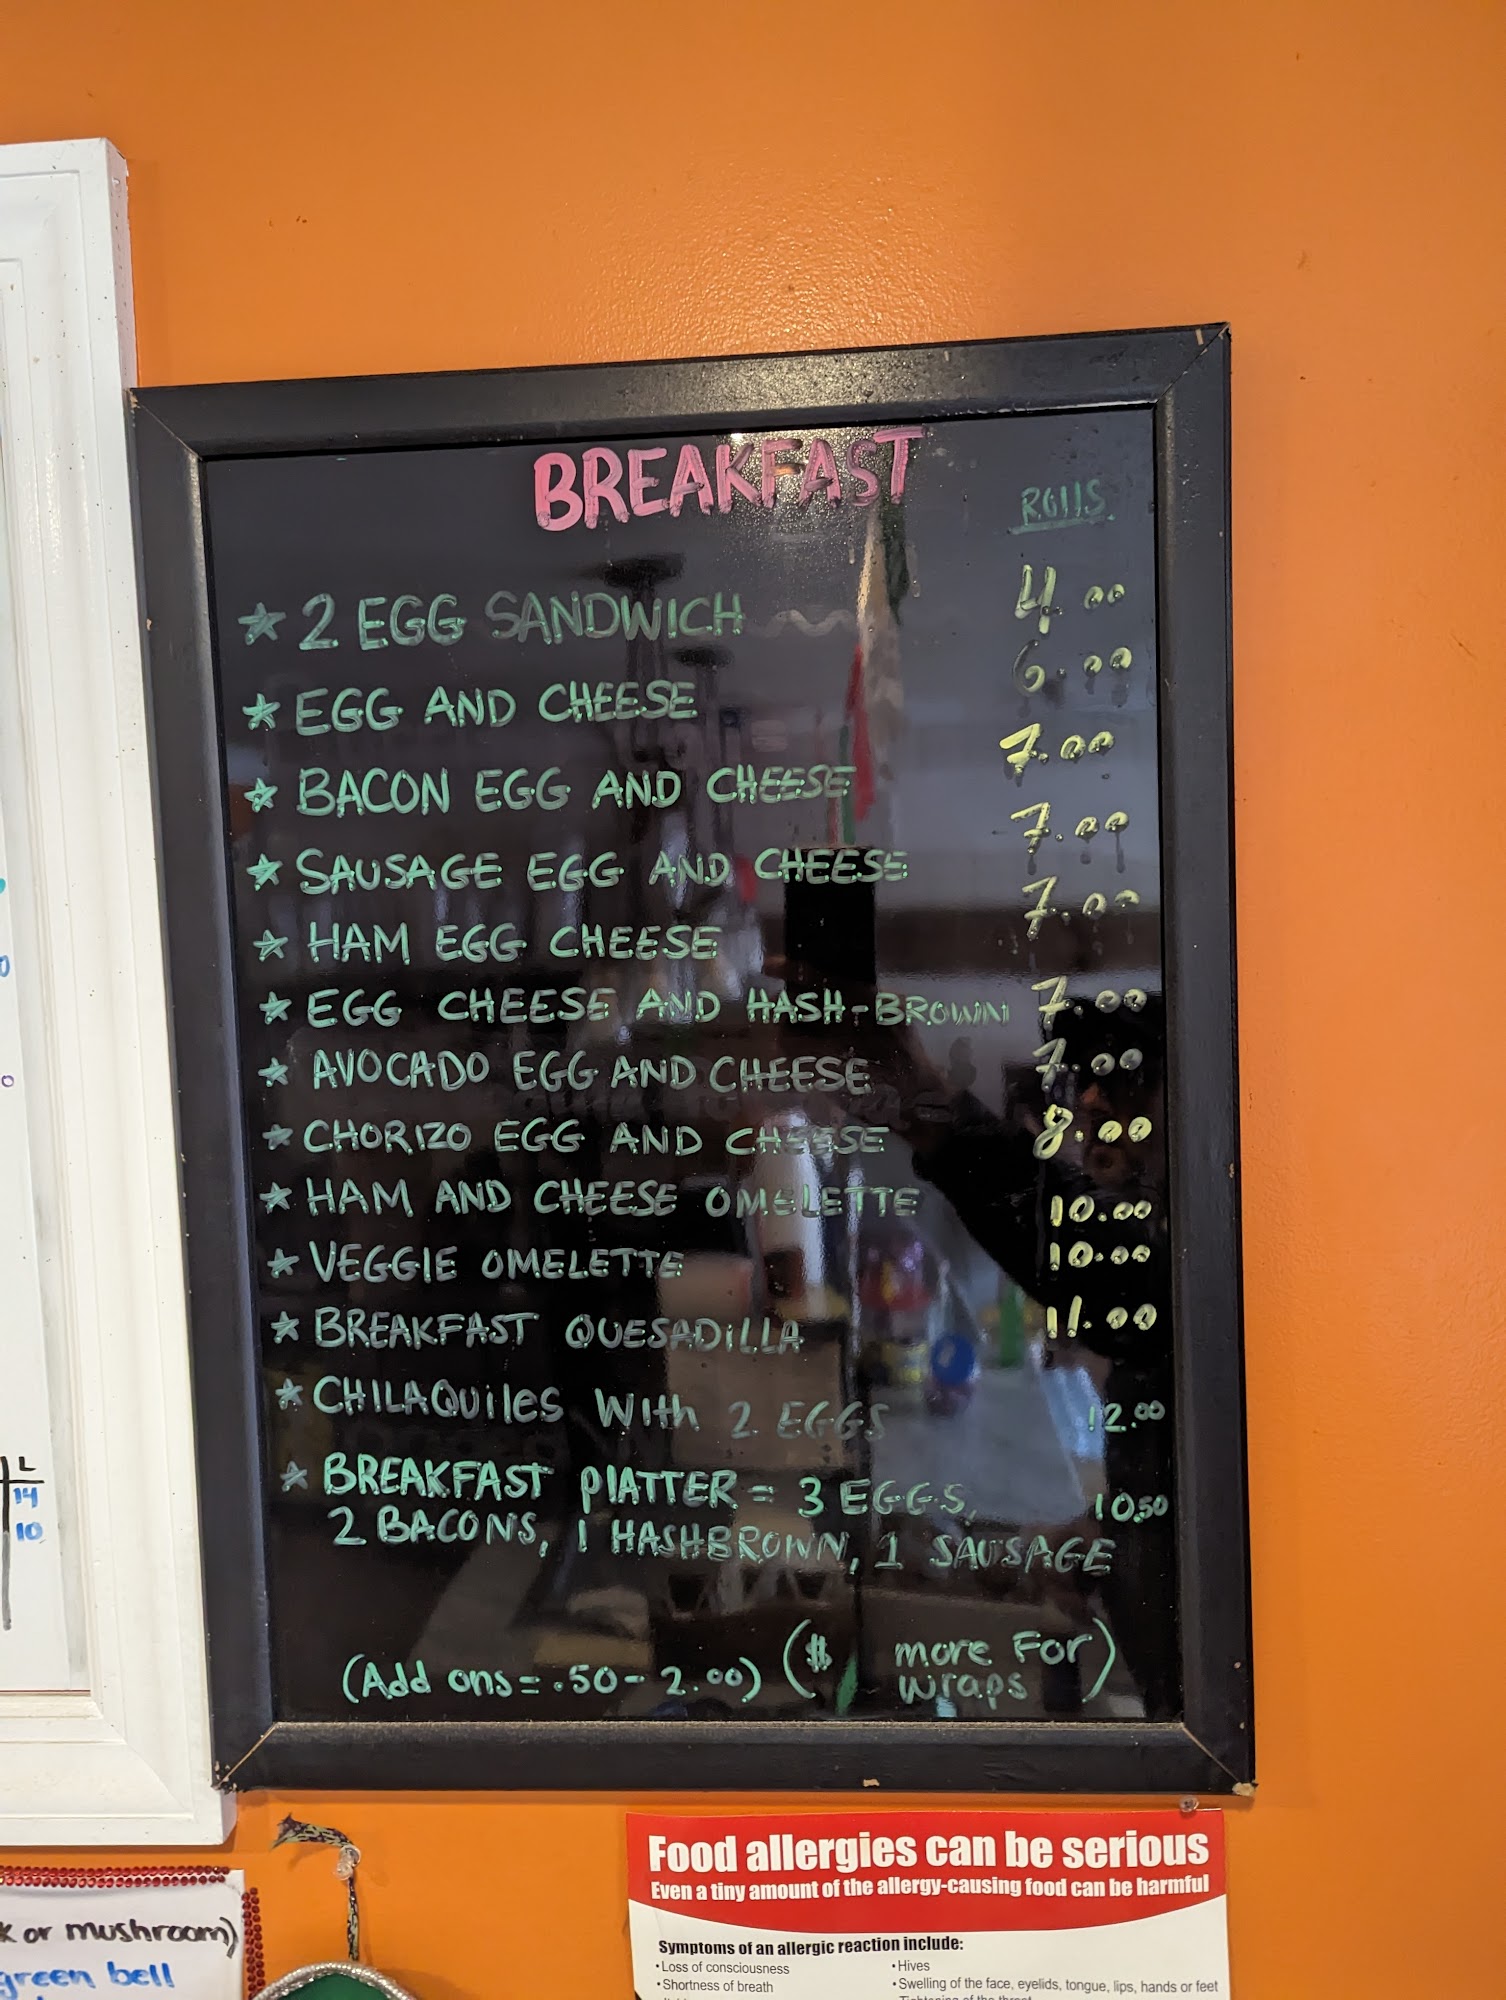 BREAKFAST
ROllS
★ 2 EGG SANDWICH 4.00
★ EGG AND CHEESE 6.00
★ BACON EGG AND CHEESE 7.00
★ SAUSAGE EGG AND CHEESE 7.00
★ HAM EGG CHEESE 7.00
★ EGG CHEESE AND HASH-BROWN 7.00
★ AVOCADO EGG AND CHEESE 7.00
★ CHORIZO EGG AND CHEESE 8.00
★ HAM AND CHEESE OMELETTE 10.00
★ VEGGIE OMELETTE 10.00
★ BREAKFAST QUESADiLLA 11.00
★ CHILAQUiles With 2 EGGS 12.00
★ BREAKFAST PlATTER = 3 EGGS, 10.50
2 BACONS, 1 HASHBROWN, 1 SAUSAGE
(Add ons = .50 - 2.00) ($ more For
wraps)
L
14
10
or mushroom)
green bell
Food allergies can be serious
Even a tiny amount of the allergy-causing food can be harmful
Symptoms of an allergic reaction include:
• Loss of consciousness
• Shortness of breath
• Hives
• Swelling of the face, eyelids, tongue, lips, hands or feet